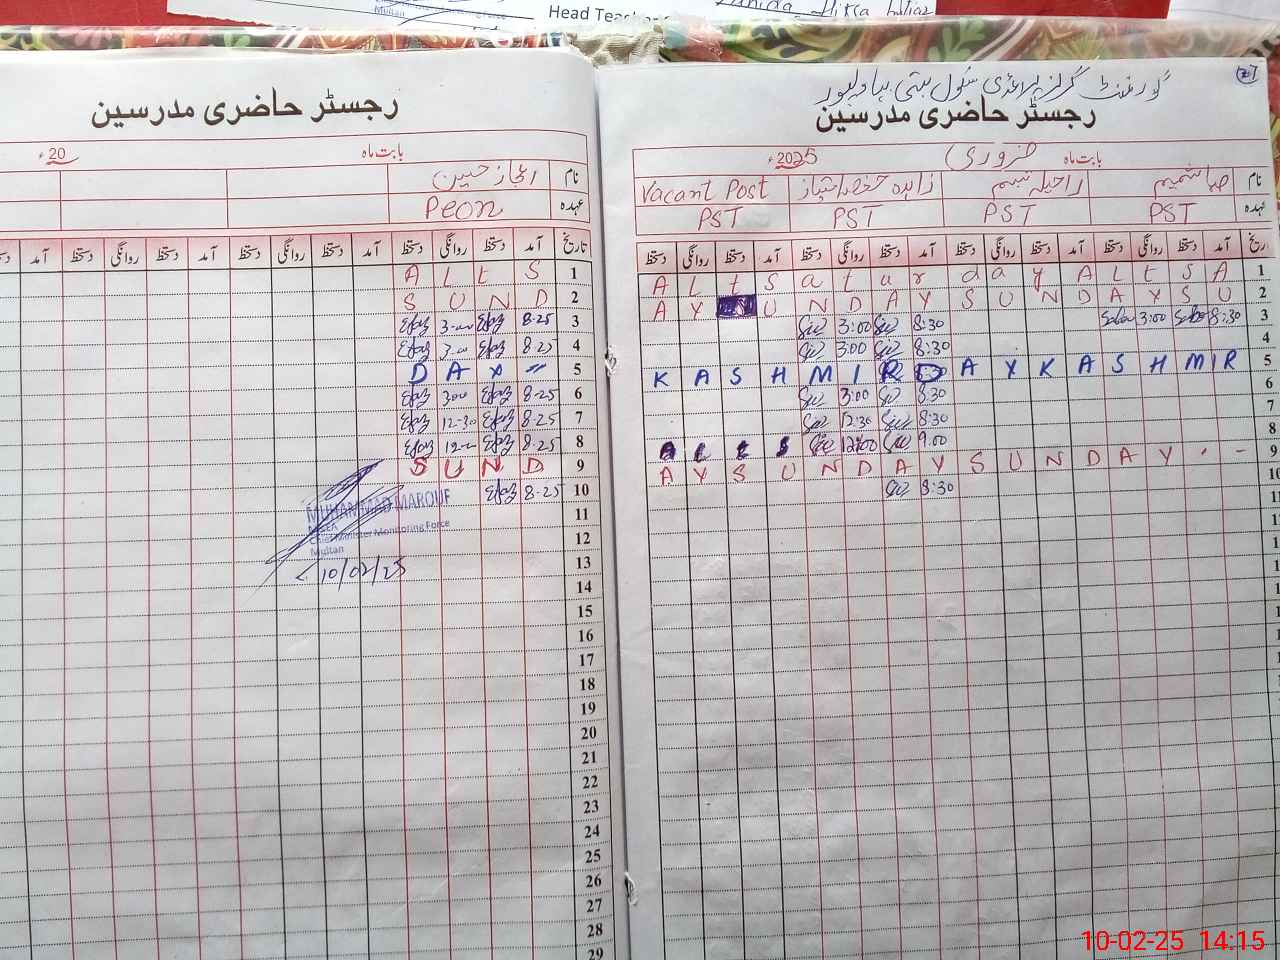 Multan
Head Teacher
گورنمنٹ گرلز پرائمری سکول بستی بہاولپور
رجسٹر حاضری مدرسین
بابت ماہ فروری 2025ء
نام صبا شمیم راحیلہ تبسم زاہدہ Vacant Post
عہدہ PST PST PST PST
تاریخ آمد دستخط روانگی دستخط آمد دستخط روانگی دستخط آمد دستخط روانگی دستخط آمد دستخط روانگی دستخط
1 A L t S a t u r d a y A L t S A
2 A Y S U N D A Y S U N D A Y S U
3 3:00 8:30 Saba 3:00 Saba 8:30
4 3:00 8:30
5 K A S H M I R D A Y K A S H M I R
6 3:00 8:30
7 12:30 8:30
8 12:00 9.00
9 A Y S U N D A Y S U N D A Y
10 8:30
رجسٹر حاضری مدرسین
بابت ماہ 20ء
نام اعجاز حسین
عہدہ Peon
تاریخ آمد دستخط روانگی دستخط آمد دستخط روانگی دستخط آمد دستخط روانگی دستخط
1 A L t S
2 S U N D
3 Ejaz 3-00 Ejaz 8-25
4 Ejaz 3-00 Ejaz 8-25
5 D A Y "
6 Ejaz 3-00 Ejaz 8-25
7 Ejaz 12-30 Ejaz 8-25
8 Ejaz 12-00 Ejaz 8-25
9 S U N D
10 Ejaz 8-25
MUHAMMAD MAROUF
MEA
Chief Minister Monitoring Force
Multan
10/02/25
11
12
13
14
15
16
17
18
19
20
21
22
23
24
25
26
27
28
29
10-02-25 14:15